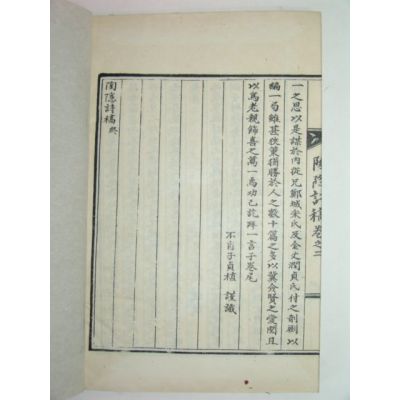 陶隱詩稿卷之二
一之思以是謀於內從兄鄭城宋氏及金丈潤貞氏付之剞劂以
編一旬雖甚狹策猶勝於人之數十篇之多以冀僉賢之愛閱且
以爲老親飾喜之萬一焉功已訖踈一言于卷尾
不肖子貞植 謹識
陶隱詩稿終